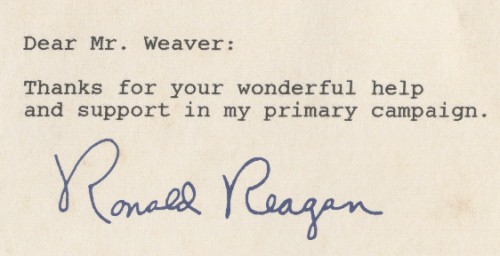 Dear Mr. Weaver:
Thanks for your wonderful help
and support in my primary campaign.
Ronald Reagan